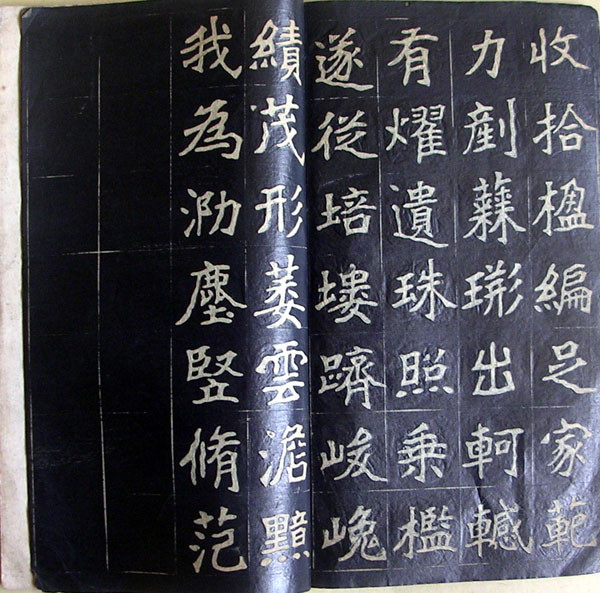 收拾楹編足家範
力剷出軻轗
有燿遺珠照乘檻
遂從培塿躋岐巉
績茂形萎雲澹
我為泐塵竪脩范